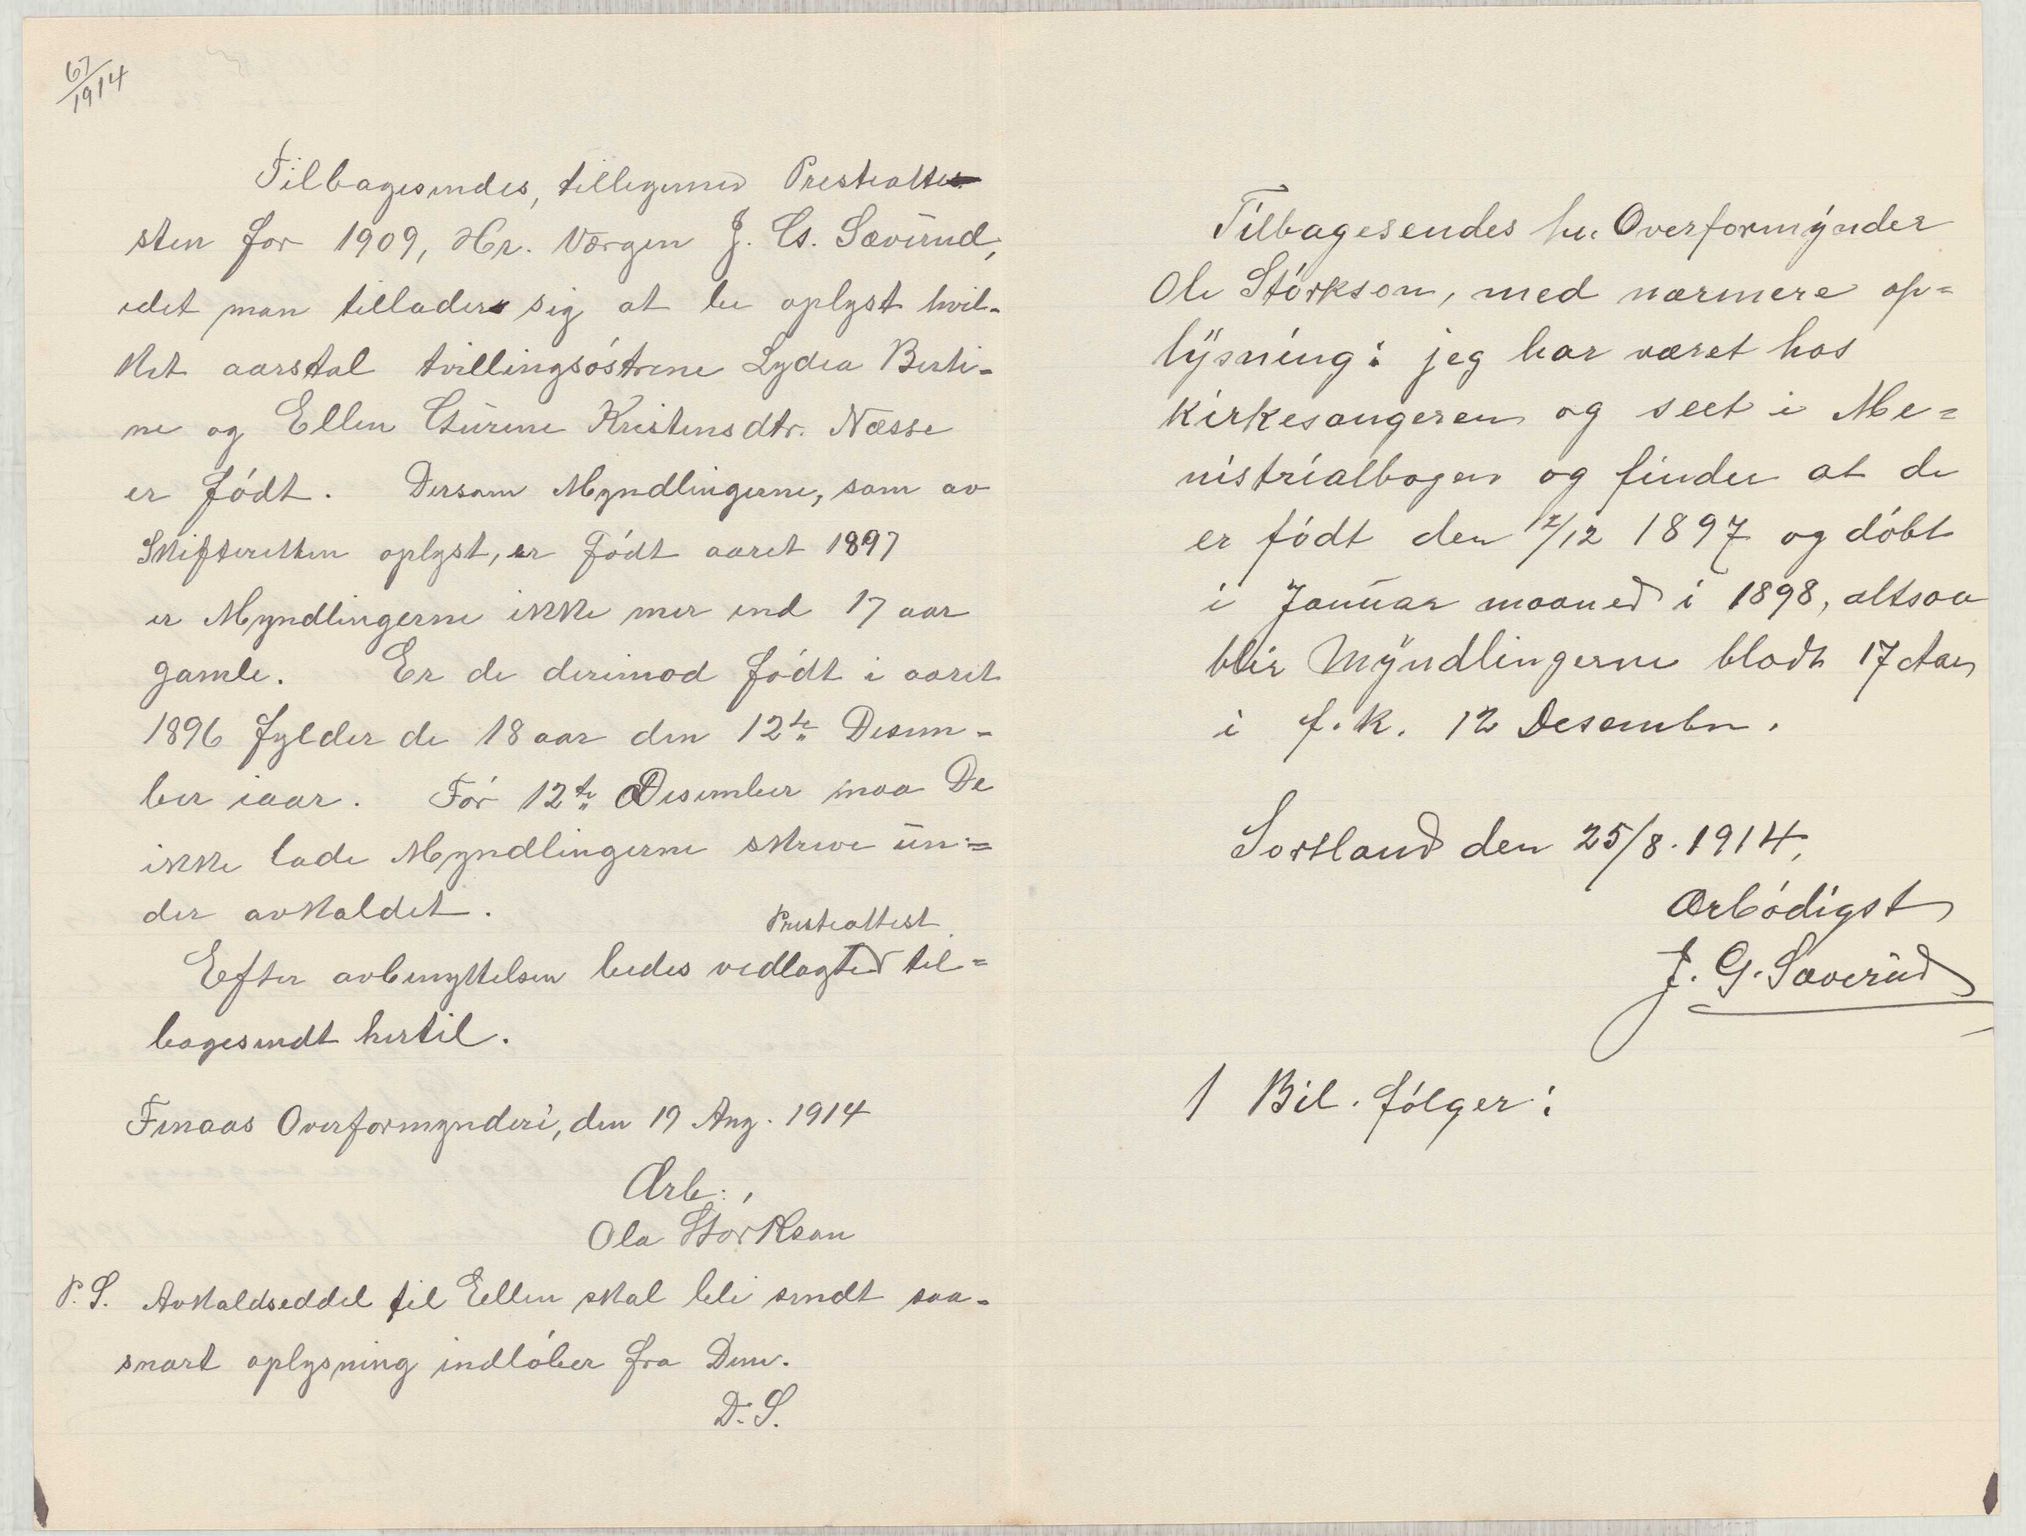 67/1914
Tilbagesendes, tillegemed Presteatte-
sten for 1909, Hr. Værgen J. G. Sæverud,
idet man tillader sig at be oplyst hvil-
ket aarstal tvillingsøstrene Lydea Berti-
ne og Ellen Gurine Kristensdtr. Næsse
er født. Dersom Myndlingerne, som av
Skifteretten oplyst, er født aaret 1897
er Myndlingerne ikke mer end 17 aar
gamle. Er de derimod født i aaret
1896 fylder de 18 aar den 12te Desem-
ber iaar. Før 12te Desember maa De
ikke lade Myndlingerne skrive un-
der avkaldet.
Presteattest
Efter avbenyttelsen bedes vedlagte til=
bagesendt hertil.
Finaas Overformynderi, den 19 Aug. 1914
Ærb.,
Ola Størkson
P. S. Avkaldseddel til Ellen skal bli sendt saa-
snart oplysning indløber fra Dem.
D. S.
Tilbagesendes hr. Overformynder
Ole Størkson, med nærmere op=
lysning: jeg har været hos
kirkesangeren og seet i Me=
nistrialbogen og finder at de
er født den 12/12 1897 og døbt
i Januar maaned i 1898, altsaa
blir Myndlingerne blodt 17 Aar
i f. k. 12 Desember.
Sortland den 25/8. 1914,
Ærbødigst
J. G. Sæverud
1 Bil. følger: